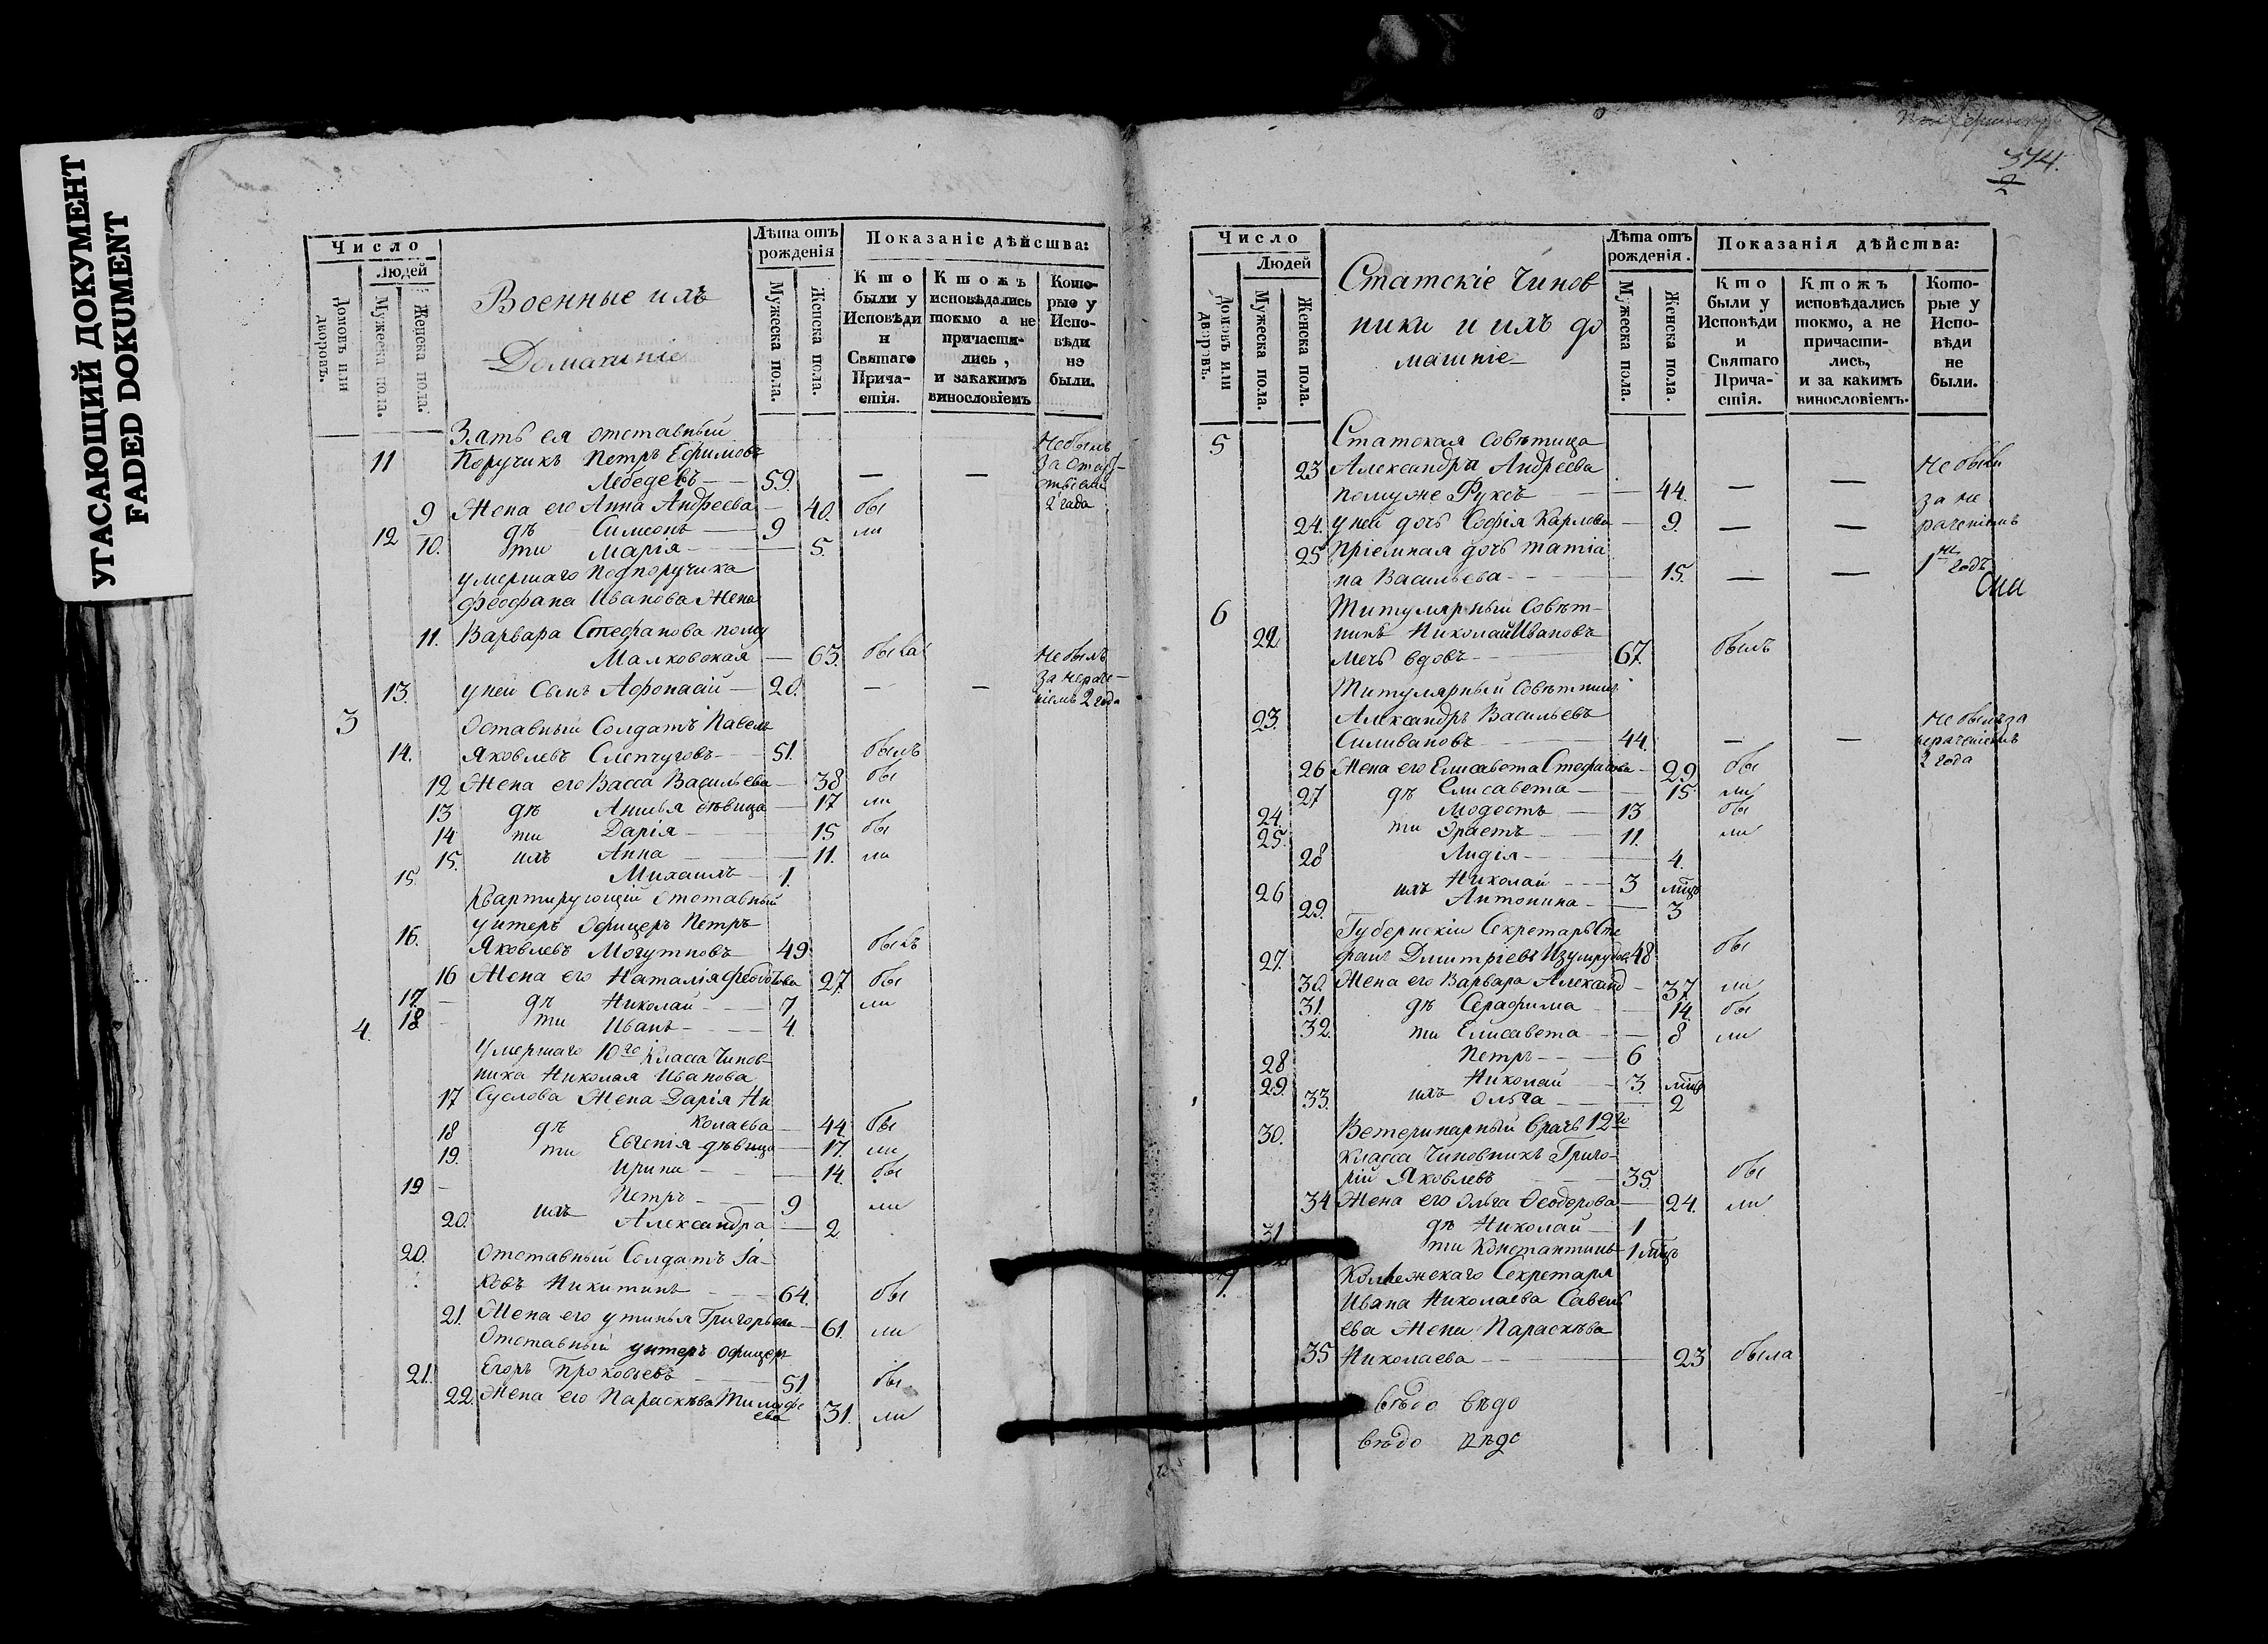 УГАСАЮЩИЙ ДОКУМЕНТ
FADED DOKUMENT
Число
Людей
Домовъ или дворовъ.
Мужеска пола.
Женска пола.
Военные ихъ
Домашніе
Лѣта отъ рожденія
Мужеска пола.
Женска пола.
Показаніе дѣйства:
Кто были у Исповѣди и Святаго Прича-стія.
Ктожъ исповѣдались токмо а не причасти-лись, и закакимъ винословіемъ
Кото-рые у Испо-вѣди не были.
Зять ея отставный
11 Поручикъ Петръ Ефимовъ
Лебедевъ 59. — — Небылъ за отлу-
9 Жена его Анна Андреева 40. бы 2 года
12 дѣ Симеонъ 9 ли
10. ти Марія 5.
умершаго Подпоручика
Феофана Иванова Жена
11. Варвара Стефанова пому
Малковская 63. была
13. у ней Сынъ Афонасій 20. — — Небылъ за нераче-ніемъ 2 года
3 Оставный Солдатъ Павелъ
14. Яковлевъ Слепчуговъ 51. былъ
12 Жена его Васса Васильева 38 бы
13 дѣ Анисья дѣвица 17 ли
14 ти Дарія 15 бы
15. ихъ Анна 11. ли
15. Михаилъ 1.
Квартирующій отставный
16. унтеръ Офицеръ Петръ
Яковлевъ Могутновъ 49 былъ
16 Жена его Наталія Федотова 27. бы
17. дѣ Николай 7 ли
18 ти Иванъ 4.
4. Умершаго 10го Класса Чинов-
ника Николая Иванова
17 Суслова Жена Дарія Ни
колаева 44. бы
18 дѣ Евгенія дѣвица 17. ли
19. ти Ирина 14. бы
19 Петръ 9 ли
20. ихъ Александра 2
20. Отставный Солдатъ Іа-
ковъ Никитинъ 64. бы
21. Жена его Устинья Григорьева 61. ли
Отставный унтеръ офицеръ
21. Егоръ Прокофьевъ 51. бы
22. Жена его Параскѣва Тимофе
ева 31. ли
374.
2
Число
Людей
Домовъ или дворовъ.
Мужеска пола.
Женска пола.
Статскіе Чинов
ники и ихъ до
машніе
Лѣта отъ рожденія.
Мужеска пола.
Женска пола.
Показанія дѣйства:
Кто были у Исповѣди и Святаго Прича-стія.
Ктожъ исповѣдались токмо, а не причасти-лись, и за какимъ винословіемъ.
Кото-рые у Испо-вѣди не были.
5 Статская Совѣтница
23 Александра Андреева
помуже Фуксъ 44. — — Не были
24. у ней дочь Софія Карлова 9. — — за не раченіемъ
25 Пріемная дочь Татіа
на Васильева 15. — — 1й годъ
6 Титулярный Совѣт-
22 никъ Николай Ивановъ
Мечь вдовъ 67. былъ
Титулярный Совѣтникъ
23. Александръ Васильевъ
Силивановъ 44. — — Не былъ за нераченіемъ 2 года
26 Жена его Елисавета Стефанова 29 бы
27 дѣ Елисавета 15 ли
24. Модестъ 13 бы
25. ти Эрастъ 11. ли
28 Лидія 4.
26 ихъ Николай 3 мцъ
29. Антонина 3
Губернскій Секретарь Сте
27. фанъ Димитріевъ Изумрудовъ 48 бы
30. Жена его Варвара Александ 37 ли
31. дѣ Серафима 14. бы
32. ти Елисавета 8 ли
28 Петръ 6
29. Николай 3. мцъ
33. ихъ Ольга 2
30. Ветеринарный врачъ 12го
класса Чиновникъ Григо-
рій Яковлевъ 35. бы
34 Жена его Ольга Ѳеодорова 24. ли
31 дѣ Николай 1
ти Константинъ 1 мцъ
7. Коллежскаго Секретаря
Ивана Николаева Савель
ева Жена Параскѣва
35 Николаева 23 была
вѣдо вѣдо
вѣдо вѣдо